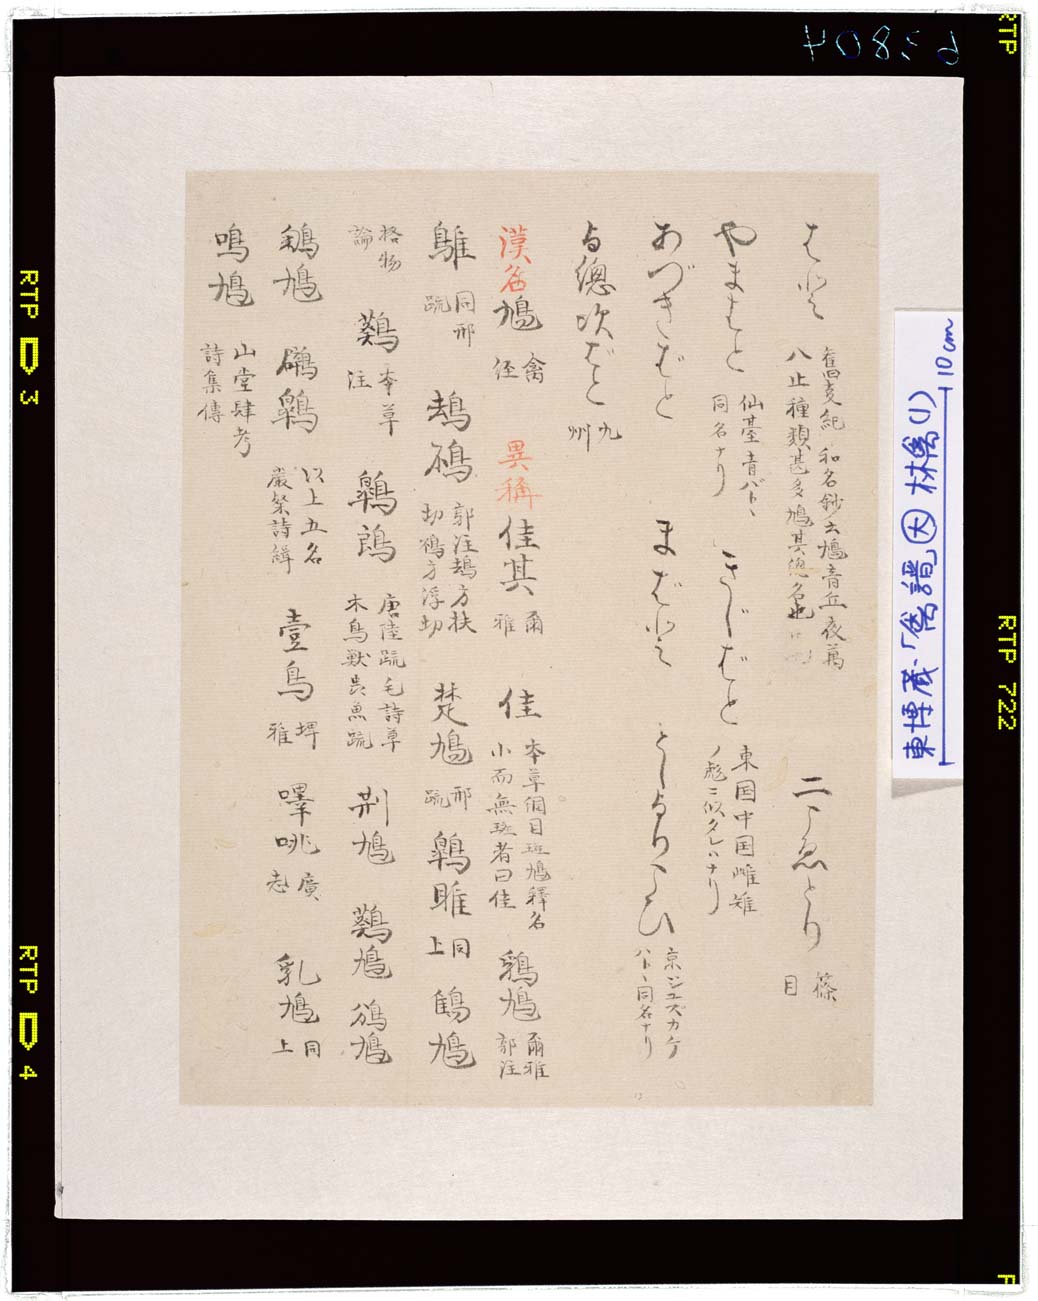 はと 舊事紀 和名鈔云鳩音丘夜萬
八止種類甚多鳩其總名也 二こゑどり 篠
目
やまはと 仙臺青バト、
同名ナリ きじばと 東国中国雌雉
ノ彪ニ似タレバナリ
あづきばと まばと としよりこひ 京ジユズカケ
バト、同名ナリ
与總次ばと 九
州
漢名 鳩 禽
經 異稱 佳其 爾
雅 佳 本草綱目斑鳩釋名
小而無斑者曰佳 鳩 爾雅
郭注
鵻 同邢
疏 郭注鴣方扶
切鴀方浮切 楚鳩 邢
疏 同
上 鳩
格物
論 本草
注 唐陸疏毛詩草
木鳥獸虫魚疏 荆鳩 鳩 鳩
鳩 以上五名
嚴粲詩緝 壹鳥 埤
雅 廣
志 乳鳩 同
上
鳴鳩 山堂肆考
詩集傳
東博蔵「禽譜」大 林禽(1)
10cm
RTP 3
RTP 4
RTP
RTP 722